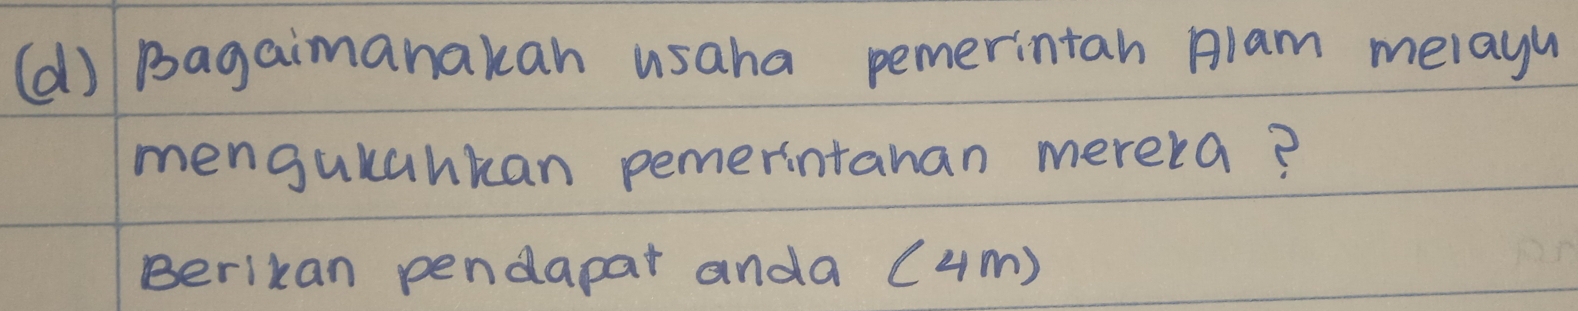 (d) Bagaimanakah usaha pemerintah Alam melayu
mengukuhkan pemerintahan mereka ?
Berikan pendapat anda (4m)